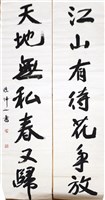 江山有待花爭放
天地無私春又歸